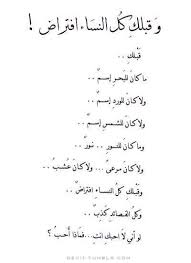 وَقبلكِ كُل النسَاء افتراض !
قَبْلك ..
ما كانَ للبَحرِ إسمٌ ..
ولا كانَ للوردِ إسمٌ ..
ولا كانَ للشمْسِ إسمٌ ..
ولا كانَ للنورِ .. نورٌ ..
ولا كانَ مرعىً .. ولا كانَ عُشبٌ ..
وقبلكِ كُل النسَاءِ افتراضٌ ..
وكل القصائدِ كذِبٌ ..
لو أني لا احبك انتِ .. فماذا أُحبّ ؟